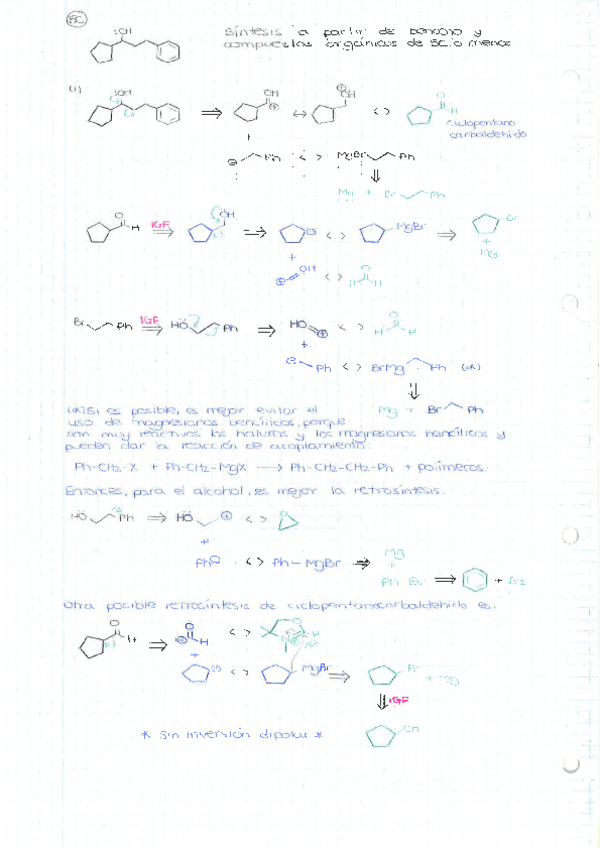 5C
:OH
Síntesis a partir de benceno y
compuestos orgánicos de 5C o menos
(1)
:OH
⇒
OH
⊕
↔
OH
⊕
<>
O
H
ciclopentano
carbaldehído
+
⊖ Ph <> MgBr Ph
⇓
Mg + Br Ph
O
H
IGF
⇒
OH
⇒
⊖
<>
MgBr
⇒
Br
+
Mg
+
⊕ OH <> H H
O
Br Ph
IGF
⇒
HO Ph
⇒
HO ⊕
<>
H H
O
+
⊖ Ph <> BrMg Ph (*)
⇓
Mg + Br Ph
(*) Si es posible, es mejor evitar el
uso de magnesianos bencílicos, porque
son muy reactivos los haluros y los magnesianos bencílicos y
pueden dar a reacción de acoplamiento:
Ph-CH2-X + Ph-CH2-MgX → Ph-CH2-CH2-Ph + polímeros.
Entonces, para el alcohol, es mejor la retrosíntesis:
HO Ph ⇒ HO ⊕ <> O
+
Ph⊖ <> Ph-MgBr ⇒
Mg
+
Ph Br ⇒ + Br2
Otra posible retrosíntesis de ciclopentanocarbaldehído es:
O
H
⇒
⊕ H
O
<>
O
N
+
⊖
<>
MgBr
⇒
Br
+ Mg
⇓ IGF
OH
* Sin inversión dipolar *